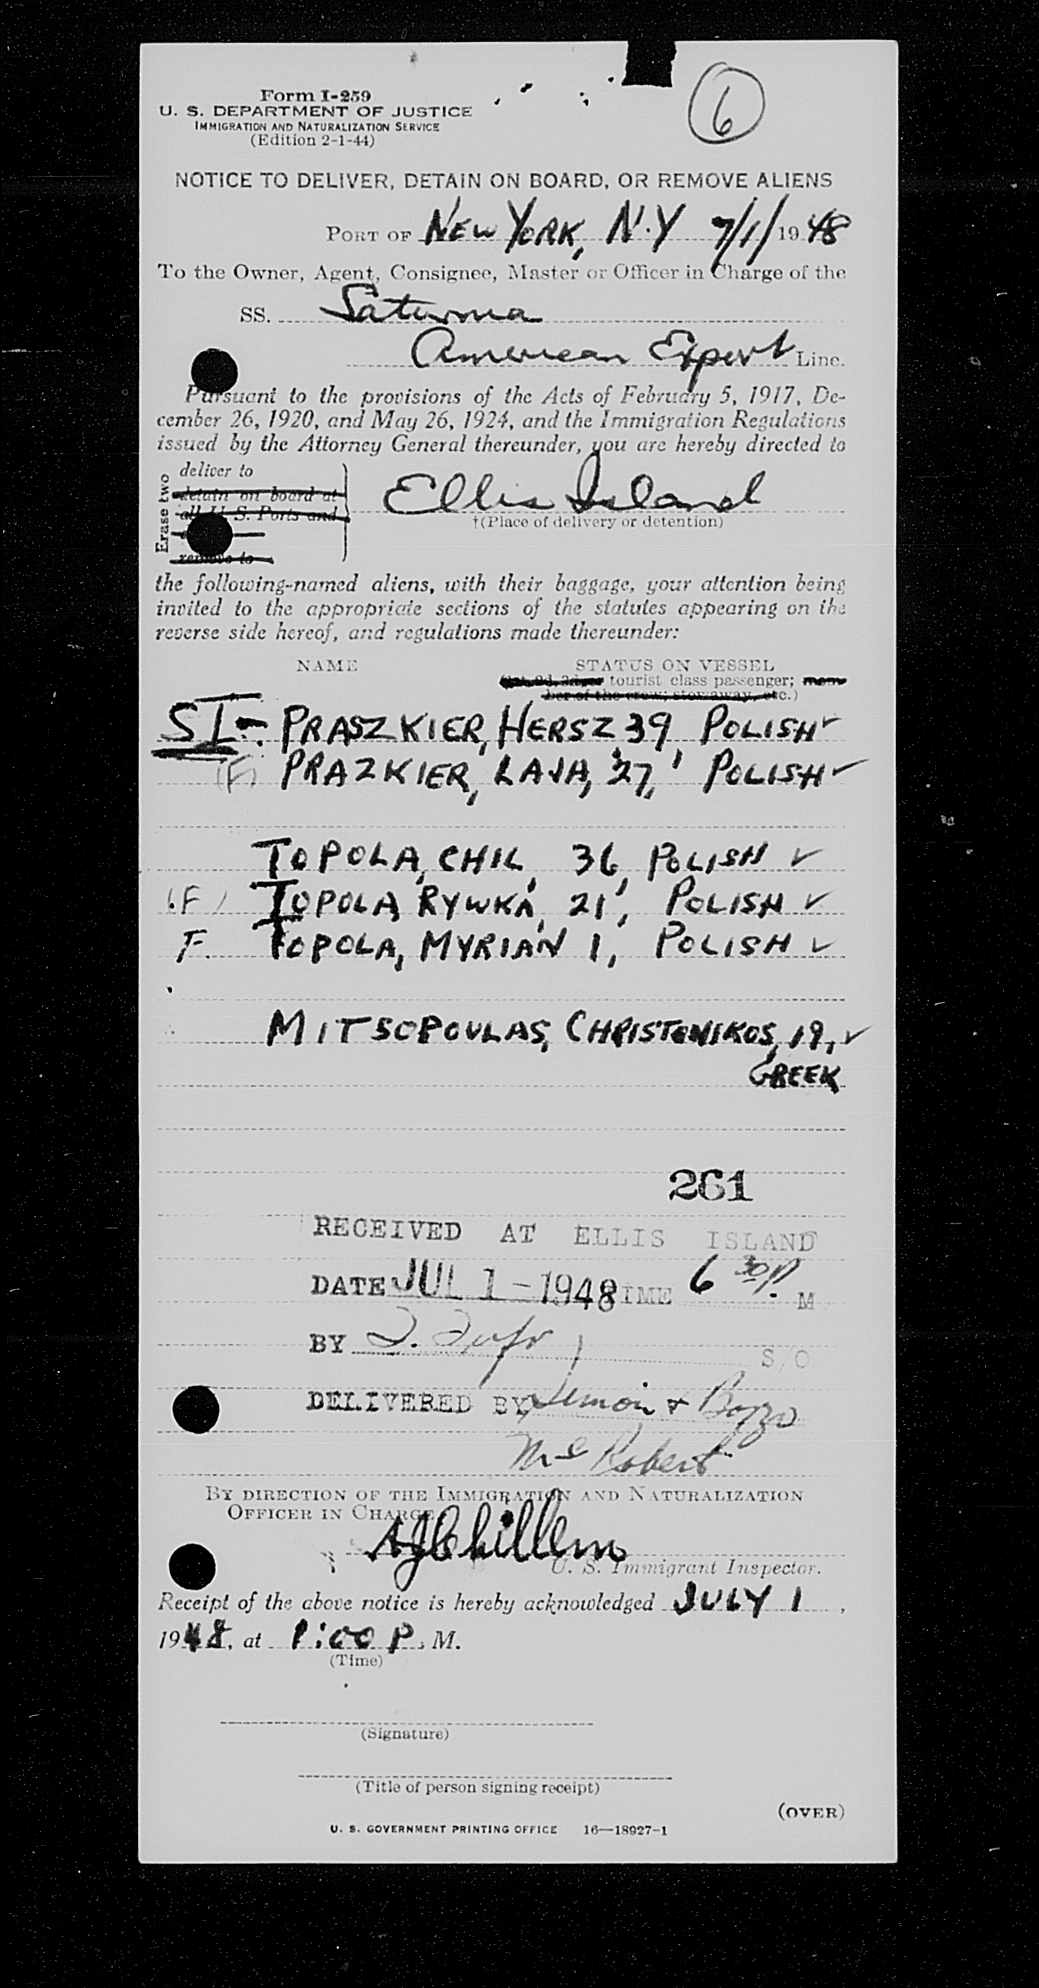 6
Form I-259
U. S. DEPARTMENT OF JUSTICE
IMMIGRATION AND NATURALIZATION SERVICE
(Edition 2-1-44)
NOTICE TO DELIVER, DETAIN ON BOARD, OR REMOVE ALIENS
PORT OF NEW YORK, N.Y 7/1/ 1948
To the Owner, Agent, Consignee, Master or Officer in Charge of the
SS. Saturnia
American Export Line.
Pursuant to the provisions of the Acts of February 5, 1917, De-
cember 26, 1920, and May 26, 1924, and the Immigration Regulations
issued by the Attorney General thereunder, you are hereby directed to
Erase two
deliver to
detain on board at
all U. S. Ports and
remove to
Ellis Island
†(Place of delivery or detention)
the following-named aliens, with their baggage, your attention being
invited to the appropriate sections of the statutes appearing on the
reverse side hereof, and regulations made thereunder:
NAME STATUS ON VESSEL
tourist class passenger; mem-
ber of the crew; stowaway, etc.)
SI- PRASZKIER, HERSZ 39 POLISH ✓
(F) PRAZKIER, LAJA, 27, POLISH ✓
TOPOLA, CHIL, 36, POLISH ✓
(F) TOPOLA, RYWKA, 21, POLISH ✓
F. TOPOLA, MYRIAN 1, POLISH ✓
MITSOPOULAS, CHRISTONIKOS, 19, ✓
GREEK
261
RECEIVED AT ELLIS ISLAND
DATE JUL 1-1948 TIME 6 30 P. M
BY S/O
DELIVERED BY Simon & Bozzo
Robert
BY DIRECTION OF THE IMMIGRATION AND NATURALIZATION
OFFICER IN CHARGE
U. S. Immigrant Inspector.
Receipt of the above notice is hereby acknowledged JULY 1,
1948, at 1:00 P. M.
(Time)
(Signature)
(Title of person signing receipt)
(OVER)
U. S. GOVERNMENT PRINTING OFFICE 16—18927-1